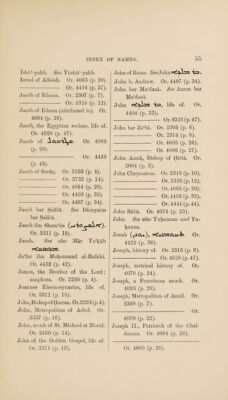 INDEX OF NAMES. 55
Ishō‘-yahbh. See Yeshū‘-yahbh.
Israel of Alḳōsh. Or. 4063 (p. 20).
Or. 4416 (p. 37).
Jacob of Edessa. Or. 2307 (p. 7).
Or. 2918 (p. 12).
Jacob of Edessa (attributed to). Or. 4094 (p. 29).
Jacob, the Egyptian recluse, life of. Or. 4528 (p. 47).
Jacob of
Or. 4083
(p. 28).
Or. 4430
(p. 43).
Jacob of Serūg. Or. 2295 (p. 6).
Or. 2732 (p. 14).
Or. 4064 (p. 20).
Or. 4403 (p. 32).
Or. 4407 (p. 34).
Jacob bar Ṣalībī. See Dionysius bar Ṣalībī.
Jacob ibn Sham‘ūn
Or. 3311 (p. 18).
Jacob, See also Mār Ya‘ḳūb
Ja‘far ibn Muḥammad al-Balkhī. Or. 4432 (p. 42).
James, the Brother of the Lord;
anaphora. Or. 2295 (p. 4).
Joannes Eleemosynarius, life of. Or. 3311 (p. 13).
John, Bishop of Ḥauran. Or. 2295 (p. 4).
John, Metropolitan of Arbel. Or. 3337 (p. 16).
John, monk of St. Michael at Mosul. Or. 2450 (p. 14).
John of the Golden Gospel, life of. Or. 3311 (p. 13).
John of Rome. See John
John b. Andrew. Or. 4407 (p. 34).
John bar Ma‘danī. See Aaron bar Ma‘danī.
John
life of. Or. 4404 (p. 33).
Or. 4526 (p. 47).
John bar Zō‘bī. Or. 2305 (p. 6).
Or. 2314 (p. 8).
Or. 4085 (p. 26).
Or. 4086 (p. 27).
John Azrak, Bishop of Ḥirta. Or. 2084 (p. 3).
John Chrysostom. Or. 2310 (p. 10).
Or. 2326 (p. 12).
Or. 4065 (p. 20).
Or. 4403 (p. 32).
Or. 4441 (p. 44).
John Sābā. Or. 4074 (p. 23).
John. See also Yuḥannan and Yuḥanna.
Jonah
Or. 4422 (p. 38).
Joseph, history of. Or. 2316 (p. 9).
Or. 4528 (p. 47).
Joseph, metrical history of. Or. 4078 (p. 24).
Joseph, a Franciscan monk. Or. 4093 (p. 29).
Joseph, Metropolitan of Amid. Or. 2300 (p. 7).
Or. 4070 (p. 22).
Joseph II., Patriarch of the Chaldæans. Or. 4084 (p. 25).
Or. 4005 (p. 26).